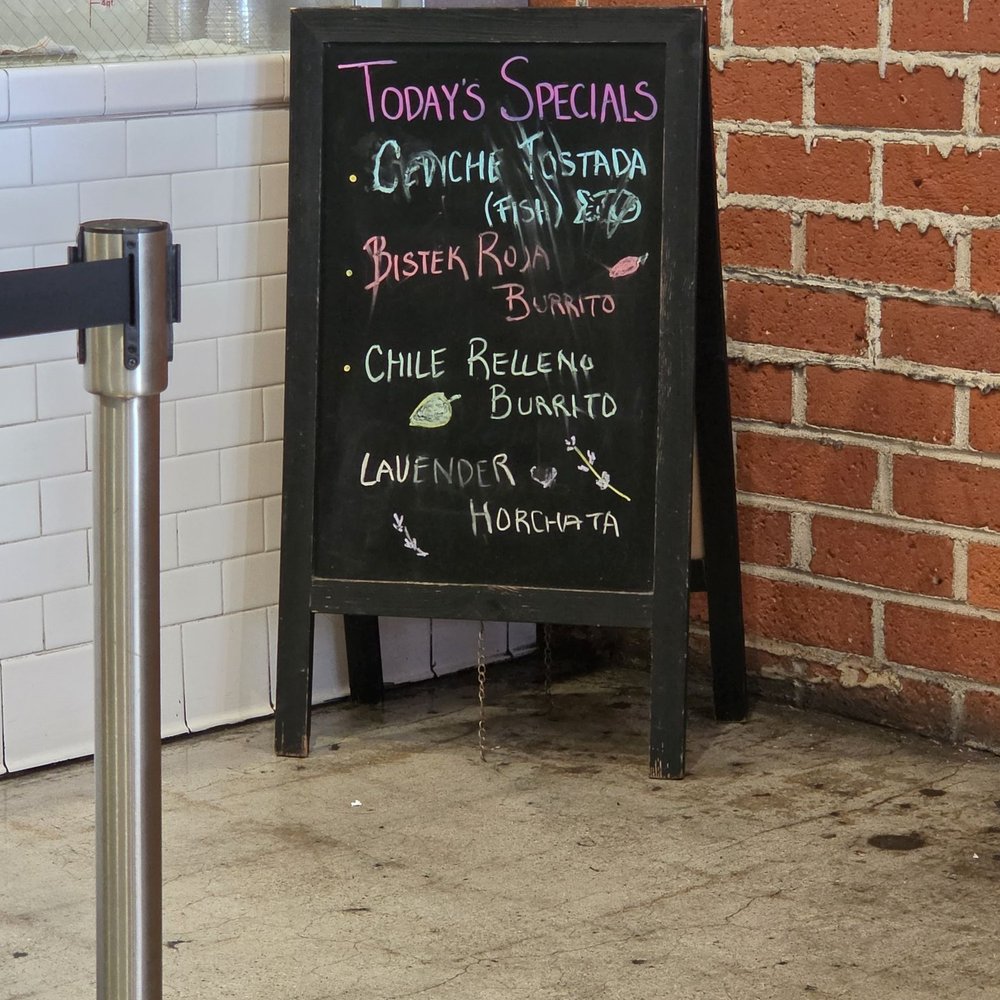 TODAY'S SPECIALS
• CEVICHE TOSTADA
(FISH)
• BISTEK ROJA
BURRITO
• CHILE RELLENO
BURRITO
LAVENDER
HORCHATA